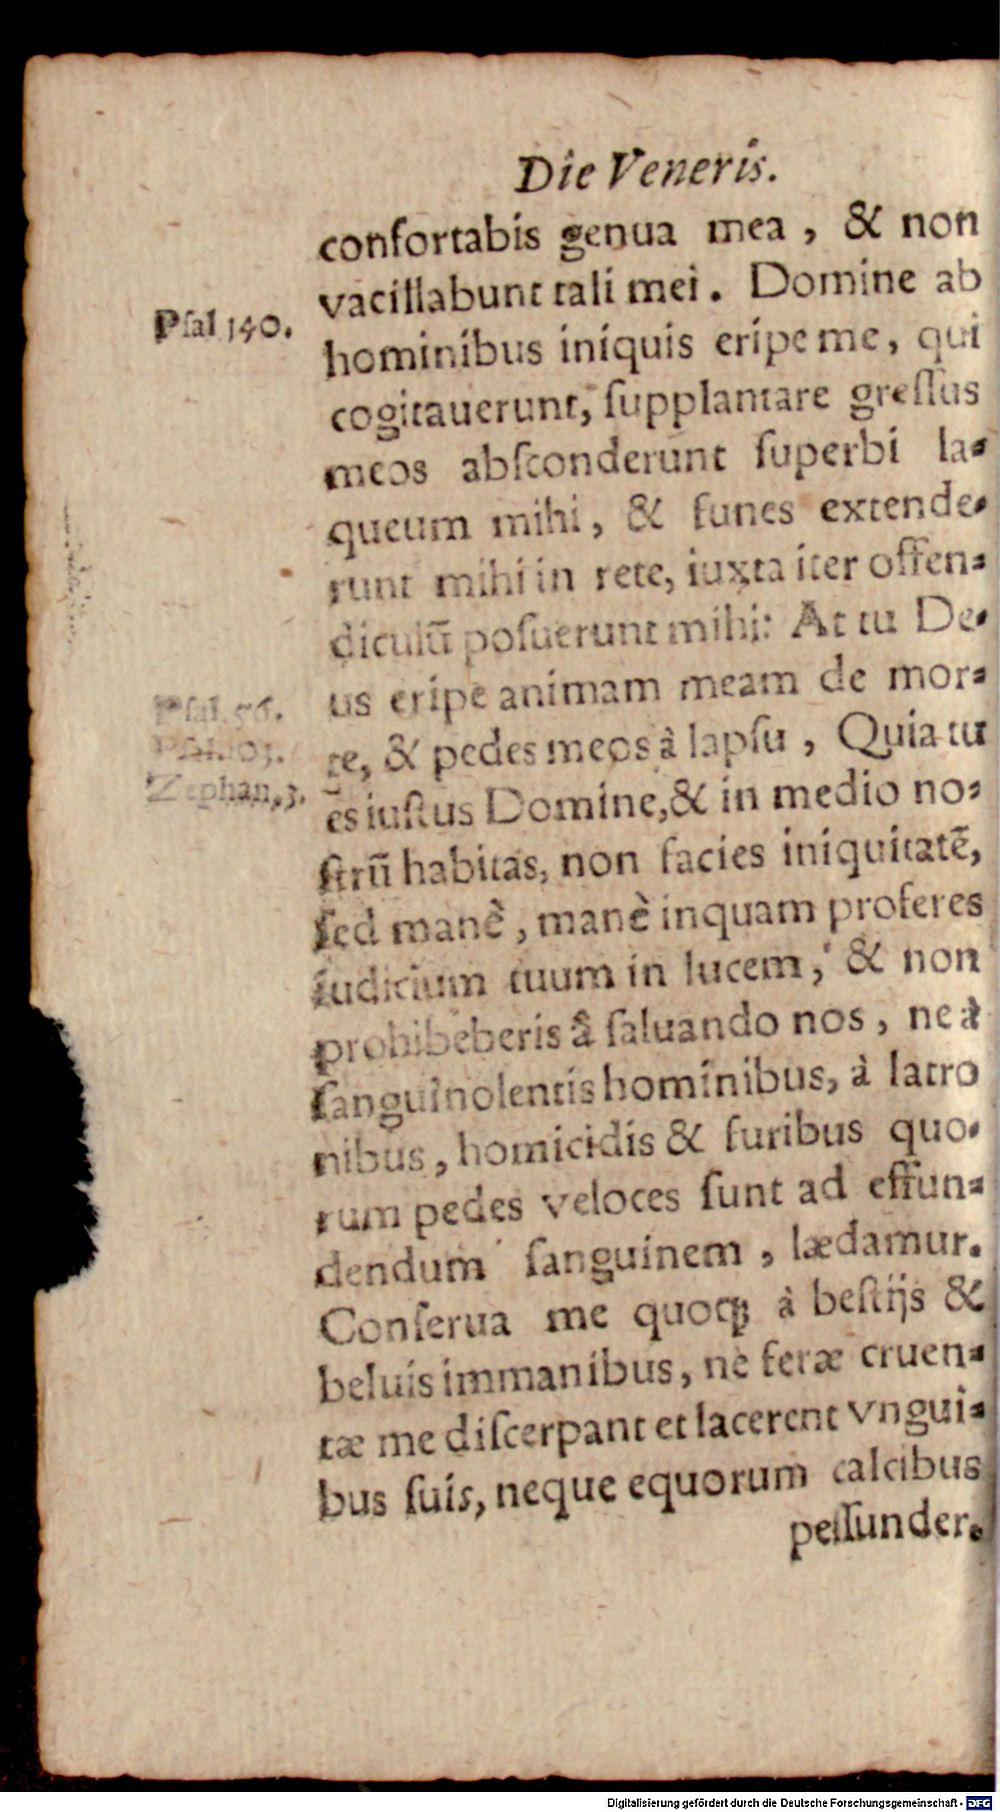 Die Veneris.
confortabis genua mea, & non
vacillabunt tali mei. Domine ab
Pſal 140.
hominibus iniquis eripe me, qui
cogitauerunt, ſupplantare greſſus
meos abſconderunt ſuperbi la-
queum mihi, & funes extende-
runt mihi in rete, iuxta iter offen-
diculũ poſuerunt mihi: At tu De-
us eripe animam meam de mor-
Pſal. 56.
te, & pedes meos à lapſu, Quia tu
Zephan. 3.
es iuſtus Domine, & in medio no-
ſtrũ habitas, non facies iniquitatẽ,
ſed manè, manè inquam proferes
iudicium tuum in lucem, & non
prohibeberis â ſaluando nos, ne à
ſanguinolentis hominibus, à latro
nibus, homicidis & furibus quo-
rum pedes veloces ſunt ad effun-
dendum ſanguinem, lædamur.
Conſerua me quoqꝫ à beſtijs &
beluis immanibus, ne feræ cruen-
tæ me diſcerpant et lacerent vngui-
bus ſuis, neque equorum calcibus
peſſunder.
Digitalisierung gefördert durch die Deutsche Forschungsgemeinschaft - DFG